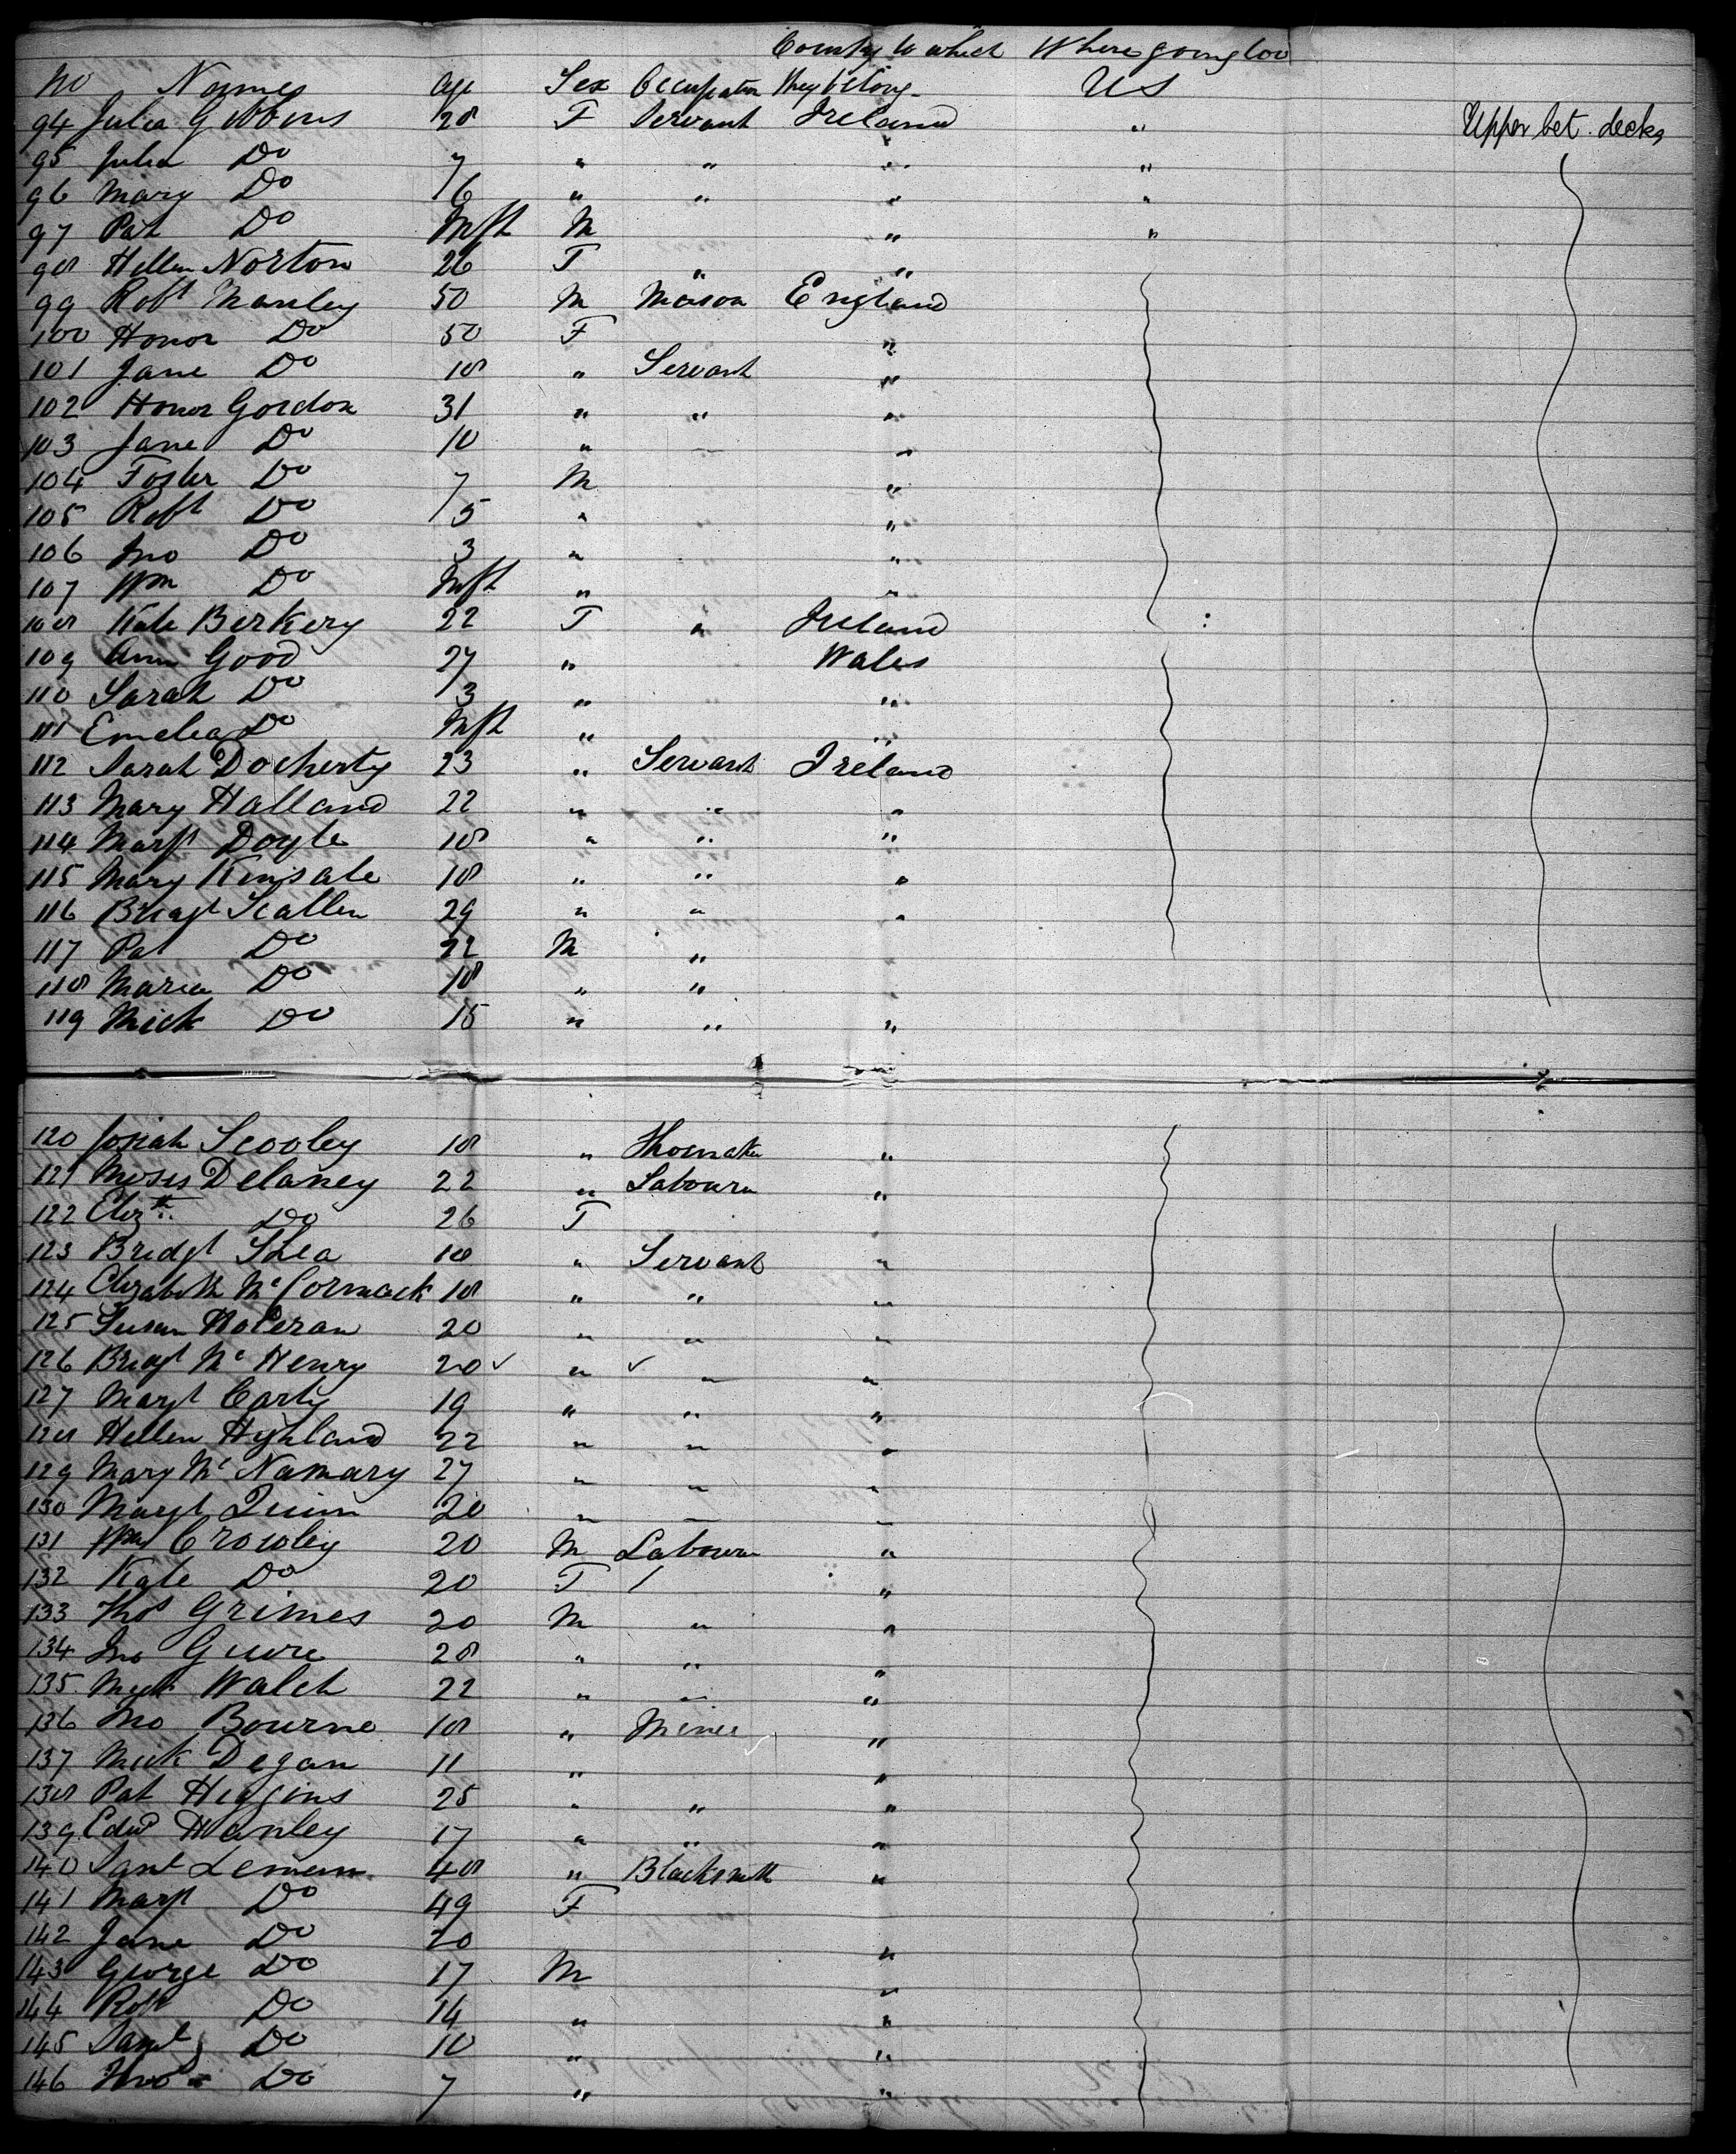 Country to which Where going too
No Names Age Sex Occupation they belong US
94 Julia Gibbons 28 F Servant Ireland " Upper bet. decks
95 Julia Do 7 " " " "
96 Mary Do 6 " " " "
97 Pat Do Inft M " "
98 Hellen Norton 26 F " "
99 Robt Manley 50 M Mason England
100 Honor Do 50 F "
101 Jane Do 18 " Servant "
102 Honor Gordon 31 " " "
103 Jane Do 10 " "
104 Foster Do 7 M "
105 Robt Do 5 " "
106 Jno Do 3 " "
107 Wm Do Inft " "
108 Kate Berkery 22 F " Ireland
109 Ann Good 27 " Wales
110 Sarah Do 3 " "
111 Emelea Do Inft " "
112 Sarah Docherty 23 " Servant Ireland
113 Mary Halland 22 " " "
114 Margt Doyle 18 " " "
115 Mary Kinsale 18 " " "
116 Bridgt Scallen 29 " " "
117 Pat Do 22 M " "
118 Maria Do 18 " " "
119 Mick Do 15 " " "
120 Josiah Scooley 18 " Shoemaker "
121 Moses Delaney 22 " Labourer "
122 Elizth Do 26 F
123 Bridgt Shea 18 " Servant "
124 Elizabeth McCormack 18 " " "
125 Susan Holeran 20 " " "
126 Bridgt McHenry 20 " " "
127 Margt Carty 19 " " "
128 Hellen Hyhland 22 " " "
129 Mary McNamary 27 " " "
130 Margt Quinn 20 " " "
131 Wm Crowley 20 M Labourer "
132 Kate Do 20 F "
133 Thos Grimes 20 M " "
134 Jno 28 " " "
135 Mick Walch 22 " " "
136 Jno Bourne 18 " Miner "
137 Mick Degan 11 " "
138 Pat Higgins 25 " " "
139 Edwd Hanley 17 " " "
140 Saml 48 " Blacksmith "
141 Margt Do 49 F
142 Jane Do 20 "
143 George Do 17 M "
144 Robt Do 14 " "
145 Saml Do 10 " "
146 Do 7 " "